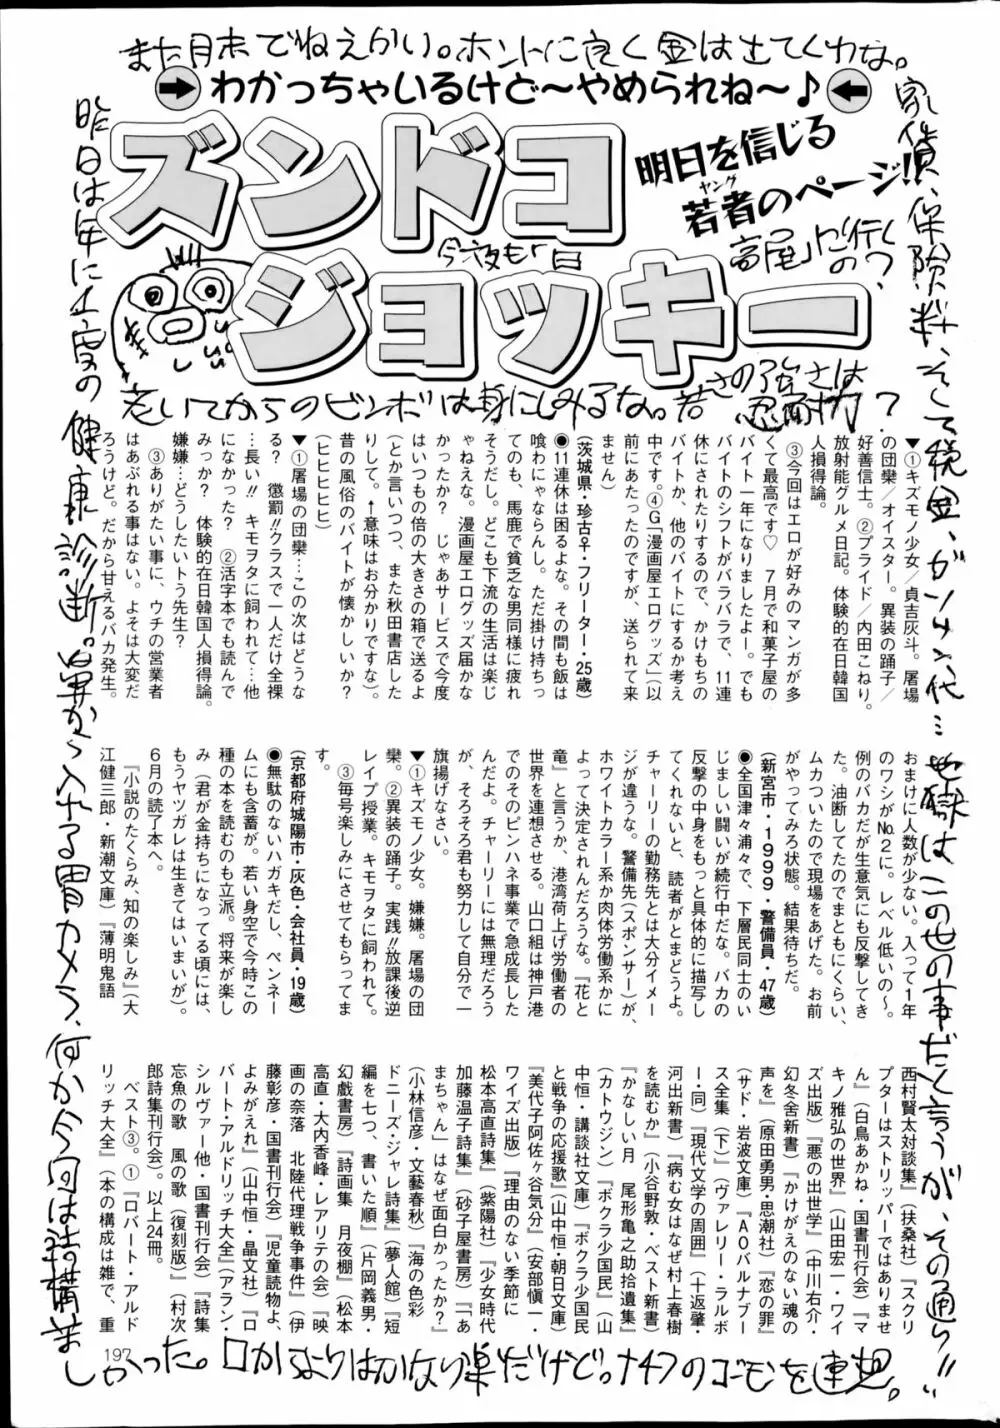 また月末でねえかい。ホントに良く金は出てくわな。
わかっちゃいるけど〜やめられね〜♪
ズンドコ
ジョッキー
明日を信じる
若者のページ!!
ヤング
今夜も
高尾
行く
の?
老いてからのビンボは身にしみるな。若さの強さは
忍耐力?
家賃、保険料、そして税金、ガソリン代…地獄はこの世の事だと言うが、その通り!!
昨日は年に1度の健康診断。鼻から入れる胃カメラ、何か今回は結構苦
しかった。口からよりはかなり楽だけど。ナチスのゴーモンを連想。
▼①キズモノ少女/貞吉灰斗。屠場
の団欒/オイスター。異装の踊子/
好善信士。②プライド/内田こねり。
放射能グルメ日記。体験的在日韓国
人損得論。
③今回はエロが好みのマンガが多
くて最高です♡ 7月で和菓子屋の
バイト一年になりましたよー。でも
バイトのシフトがバラバラで、11連
休にされたりするので、かけもちの
バイトか、他のバイトにするか考え
中です。④G「漫画屋エログッズ」(以
前にあたったのですが、送られて来
ません)
(茨城県・珍古♀・フリーター・25歳)
●11連休は困るよな。その間も飯は
喰わにゃならんし。ただ掛け持ちっ
てのも、馬鹿で貧乏な男同様に疲れ
そうだし。どこも下流の生活は楽じ
ゃねえな。漫画屋エログッズ届かな
かったか? じゃあサービスで今度
はいつもの倍の大きさの箱で送るよ
(とか言いつつ、また秋田書店した
りして。↑意味はお分かりですな)。
昔の風俗のバイトが懐かしいか?
(ヒヒヒヒヒ)
▼①屠場の団欒…この次はどうな
る? 懲罰!!クラスで一人だけ全裸
…長い!! キモヲタに飼われて…他
になかった? ②活字本でも読んで
みっか? 体験的在日韓国人損得論。
嫌嫌…どうしたいトう先生?
③ありがたい事に、ウチの営業者
はあぶれる事はない。よそは大変だ
ろうけど。だから甘えるバカ発生。
おまけに人数が少ない。入って1年
のワシがNo.2に。レベル低いの〜。
例のバカだが生意気にも反撃してき
た。油断してたのでまともにくらい、
ムカついたので現場をあげた。お前
がやってみろ状態。結果待ちだ。
(新宮市・1999・警備員・47歳)
●全国津々浦々で、下層民同士のい
じましい闘いが続行中だな。バカの
反撃の中身をもっと具体的に描写し
てくれないと、読者がとまどうよ。
チャーリーの勤務先とは大分イメー
ジが違うな。警備先(スポンサー)が、
ホワイトカラー系か肉体労働系かに
よって決定されんだろうな。『花と
竜』と言うか、港湾荷上げ労働者の
世界を連想させる。山口組は神戸港
でのそのピンハネ事業で急成長した
んだよ。チャーリーには無理だろう
が、そろそろ君も努力して自分で一
旗揚げなさい。
▼①キズモノ少女。嫌嫌。屠場の団
欒。②異装の踊子。実践!!放課後逆
レイプ授業。キモヲタに飼われて。
③毎号楽しみにさせてもらってま
す。
(京都府城陽市・灰色・会社員・19歳)
●無駄のないハガキだし、ペンネー
ムにも含蓄が。若い身空で今時この
種の本を読むのも立派。将来が楽し
み(君が金持ちになってる頃には、
もうヤツガレは生きてはいまいが)。
6月の読了本へ。
『小説のたくらみ、知の楽しみ』(大
江健三郎・新潮文庫)『薄明鬼語
西村賢太対談集』(扶桑社)『スクリ
プターはストリッパーではありませ
ん』(白鳥あかね・国書刊行会)『マ
キノ雅弘の世界』(山田宏一・ワイ
ズ出版)『悪の出世学』(中川右介・
幻冬舎新書)『かけがえのない魂の
声を』(原田勇男・思潮社)『恋の罪』
(サド・岩波文庫)『AOバルナブー
ス全集(下)』(ヴァレリー・ラルボ
ー・同)『現代文学の周囲』(十返肇・
河出新書)『病む女はなぜ村上春樹
を読むか』(小谷野敦・ベスト新書)
『かなしい月 尾形亀之助拾遺集』
(カトウジン)『ボクラ少国民』(山
中恒・講談社文庫)『ボクラ少国民
と戦争の応援歌』(山中恒・朝日文庫)
『美代子阿佐ヶ谷気分』(安部愼一・
ワイズ出版)『理由のない季節に
松本高直詩集』(紫陽社)『少女時代
加藤温子詩集』(砂子屋書房)『「あ
まちゃん」はなぜ面白かったか?』
(小林信彦・文藝春秋)『海の色彩
ドニーズ・ジャレ詩集』(夢人館)『短
編を七つ、書いた順』(片岡義男・
幻戯書房)『詩画集 月夜棚』(松本
高直・大内香峰・レアリテの会)『映
画の奈落 北陸代理戦争事件』(伊
藤彰彦・国書刊行会)『児童読物よ、
よみがえれ』(山中恒・晶文社)『ロ
バート・アルドリッチ大全』(アラン・
シルヴァー他・国書刊行会)『詩集
忘魚の歌 風の歌(復刻版)』(村次
郎詩集刊行会)。以上24冊。
ベスト③。①『ロバート・アルド
リッチ大全』(本の構成は雑で、重
197